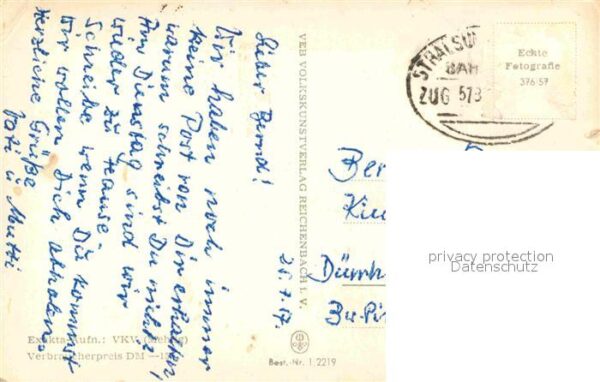 Lieber Bernd!
Wir haben noch immer
keine Post von Dir erhalten,
warum schreibst Du nicht?
Am Dienstag sind wir
wieder zu Hause.
Schreibe wenn Du kommst
wir wollen Dich abholen.
Herzliche Grüße
Vati u. Mutti
25.7.57.
VEB VOLKSKUNSTVERLAG REICHENBACH I. V.
STRALSU
BAH
ZUG 573
Echte
Fotografie
376 57
Ber
Kin
Dürrh
Bu-Pi
privacy protection
Datenschutz
Exakta-Aufn.: VKV
Verbraucherpreis DM
Best.-Nr. 1:2219